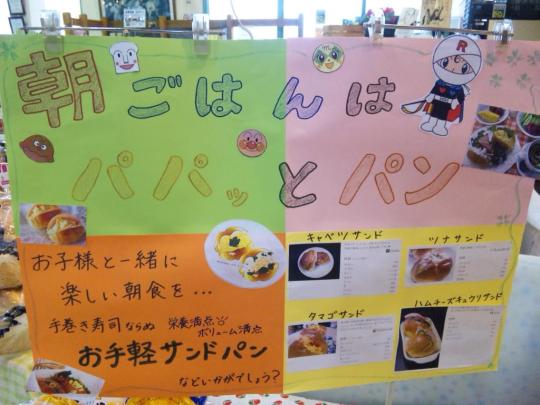 朝ごはんは
パパッとパン
お子様と一緒に
楽しい朝食を…
手巻き寿司ならぬ
栄養満点
ボリューム満点
お手軽サンドパン
などいかがでしょう?
キャベツサンド
ツナサンド
タマゴサンド
ハムチーズキュウリサンド
R